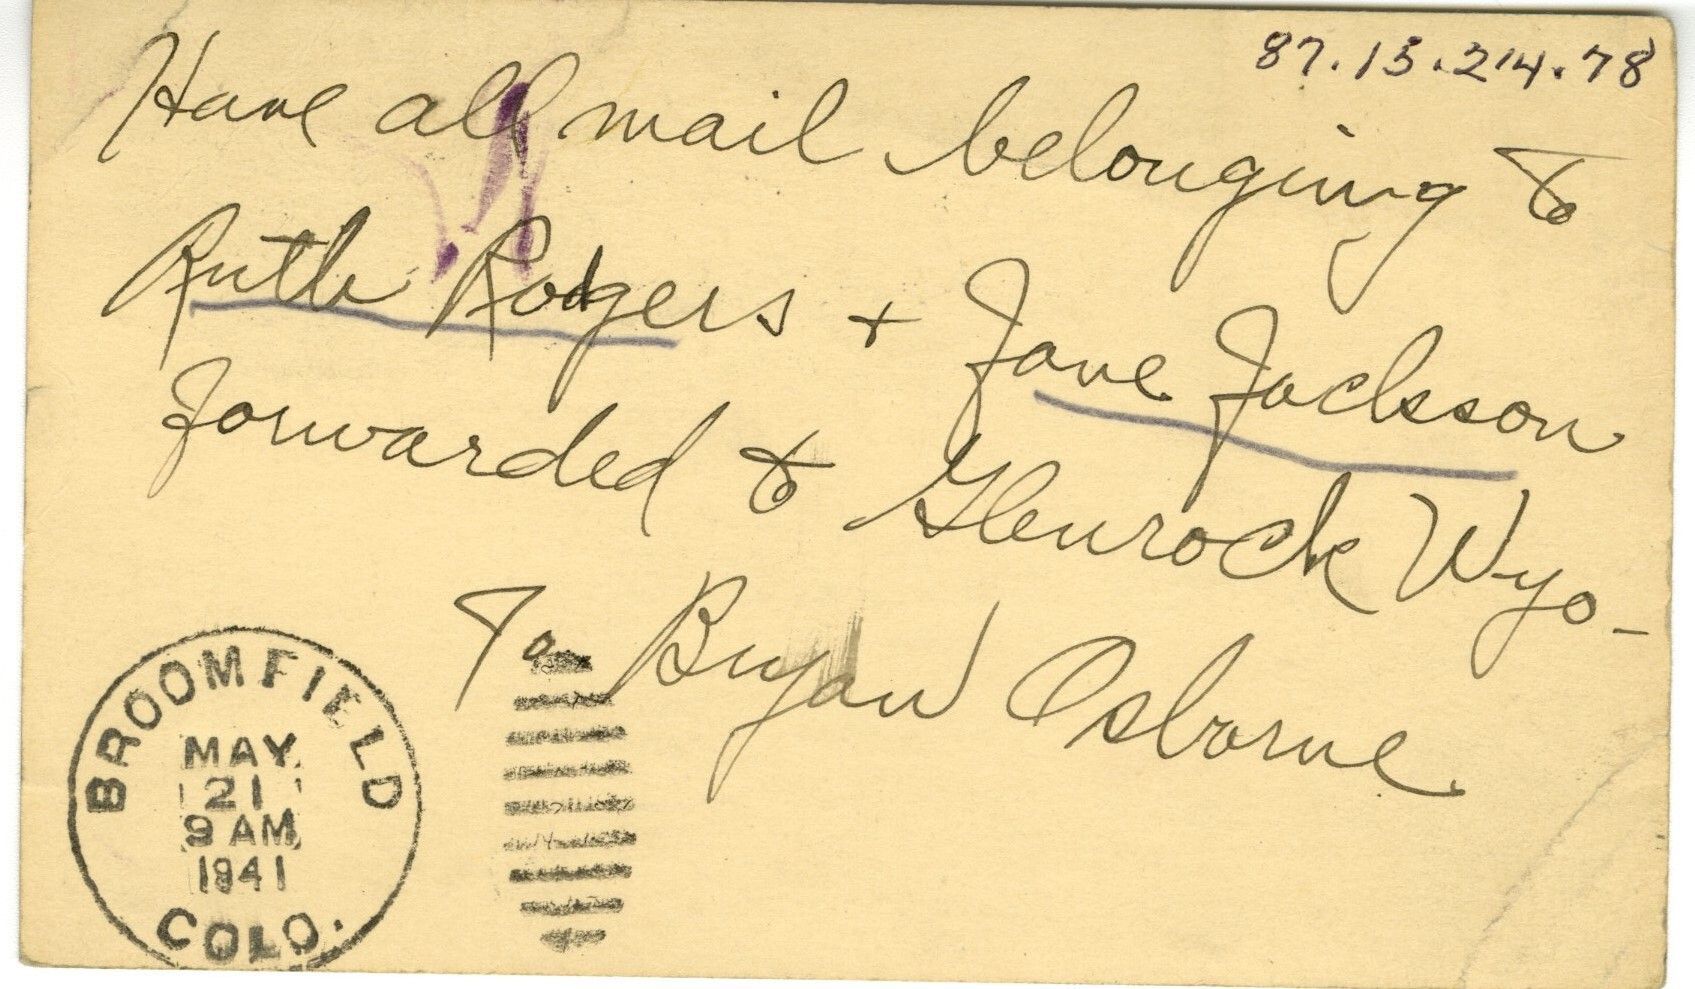 87.15.214.78
Have all mail belonging to
Ruth Rodgers + Jane Jackson
forwarded to Glenrock Wyo -
To Bryan Osborne.
BROOMFIELD
MAY
21
9 AM
1941
COLO.